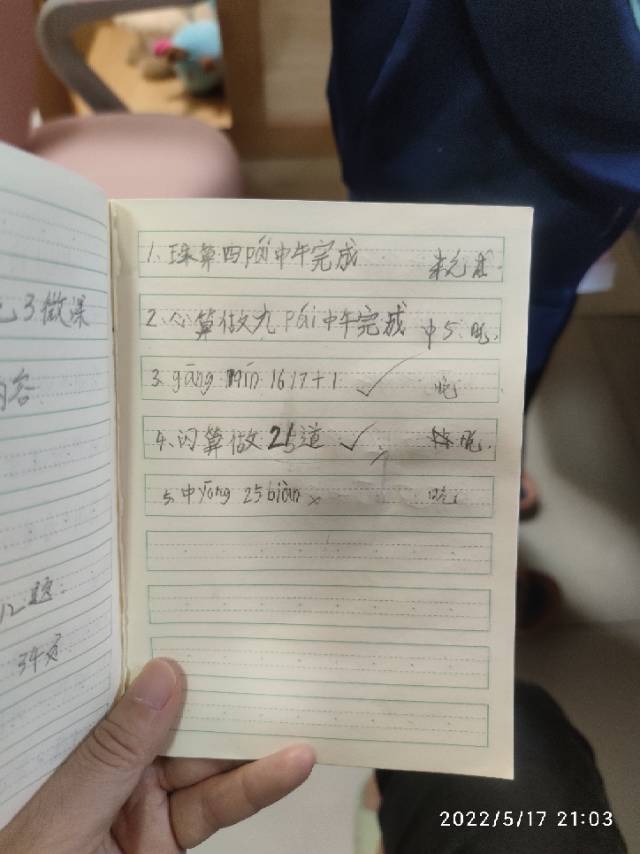 3做课
内容
12题
34好
1、珠算四pái中午完成
2、心算做九pái中午完成 中5 晚.
3. gāng qín 1617+1 ✓ 晚
4、闪算做25道 ✓ 晚.
5、中yāng 25biàn × 晚
2022/5/17 21:03